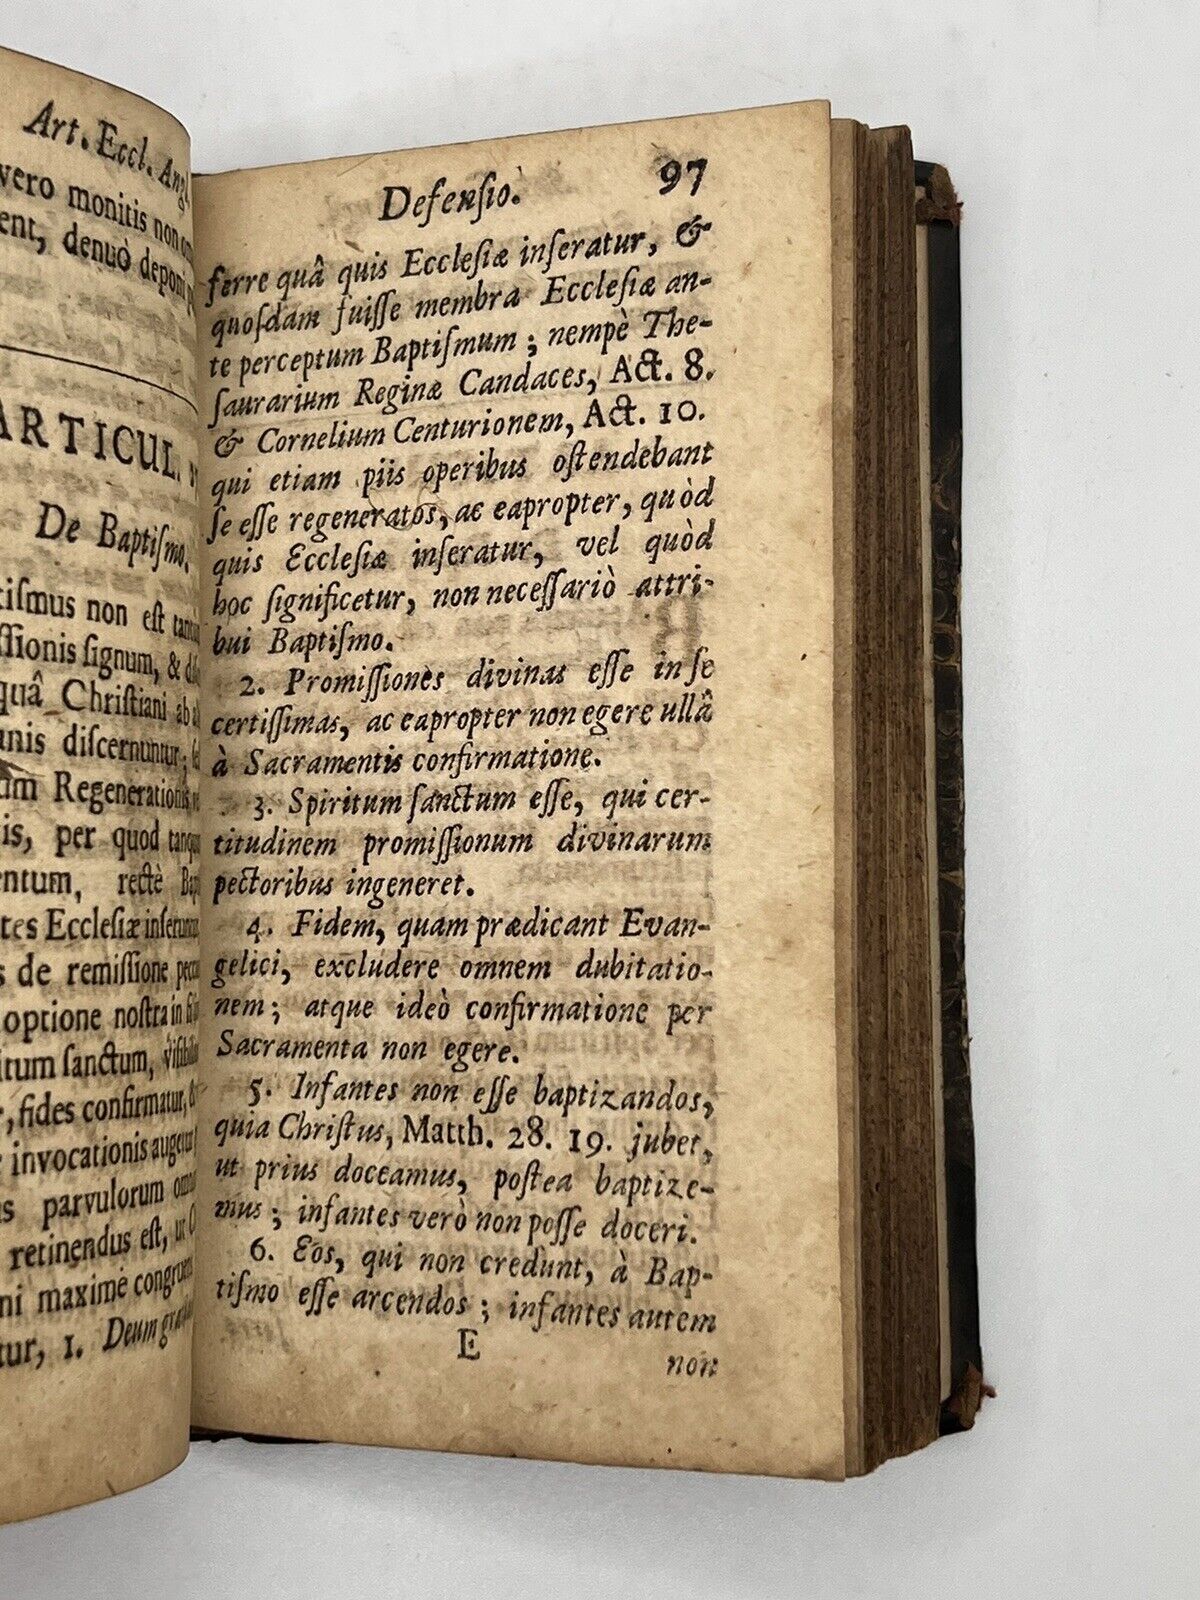 Art. Eccl. Angl.
vero monitis non
ent, denuò deponi
ARTICUL.
De Baptiſmo.
tiſmus non est
ſſionis ſignum, &
quâ Chriſtiani ab
anis diſcernuntur;
um Regenerationis
is, per quod
entum, rectè
tes Eccleſiæ
s de remiſſione
optione noſtra in
itum ſanctum,
, fides confirmatur,
invocationis
us parvulorum
retinendus eſt, ut
ni maximè
tur, 1. Deum
Defenſio. 97
ferre quâ quis Eccleſiæ inſeratur, &
quoſdam fuiſſe membra Eccleſiæ an-
te perceptum Baptiſmum; nempè The-
ſaurarium Reginæ Candaces, Act. 8.
& Cornelium Centurionem, Act. 10.
qui etiam piis operibus oſtendebant
ſe eſſe regeneratos, ac eapropter, quòd
quis Eccleſiæ inſeratur, vel quòd
hoc ſignificetur, non neceſſariò attri-
bui Baptiſmo.
2. Promiſſiones divinas eſſe in ſe
certiſſimas, ac eapropter non egere ullâ
à Sacramentis confirmatione.
3. Spiritum ſanctum eſſe, qui cer-
titudinem promiſſionum divinarum
pectoribus ingeneret.
4. Fidem, quam prædicant Evan-
gelici, excludere omnem dubitatio-
nem; atque ideò confirmatione per
Sacramenta non egere.
5. Infantes non eſſe baptizandos,
quia Chriſtus, Matth. 28. 19. jubet,
ut prius doceamus, poſtea baptize-
mus; infantes verò non poſſe doceri.
6. Eos, qui non credunt, à Bap-
tiſmo eſſe arcendos; infantes autem
E
non